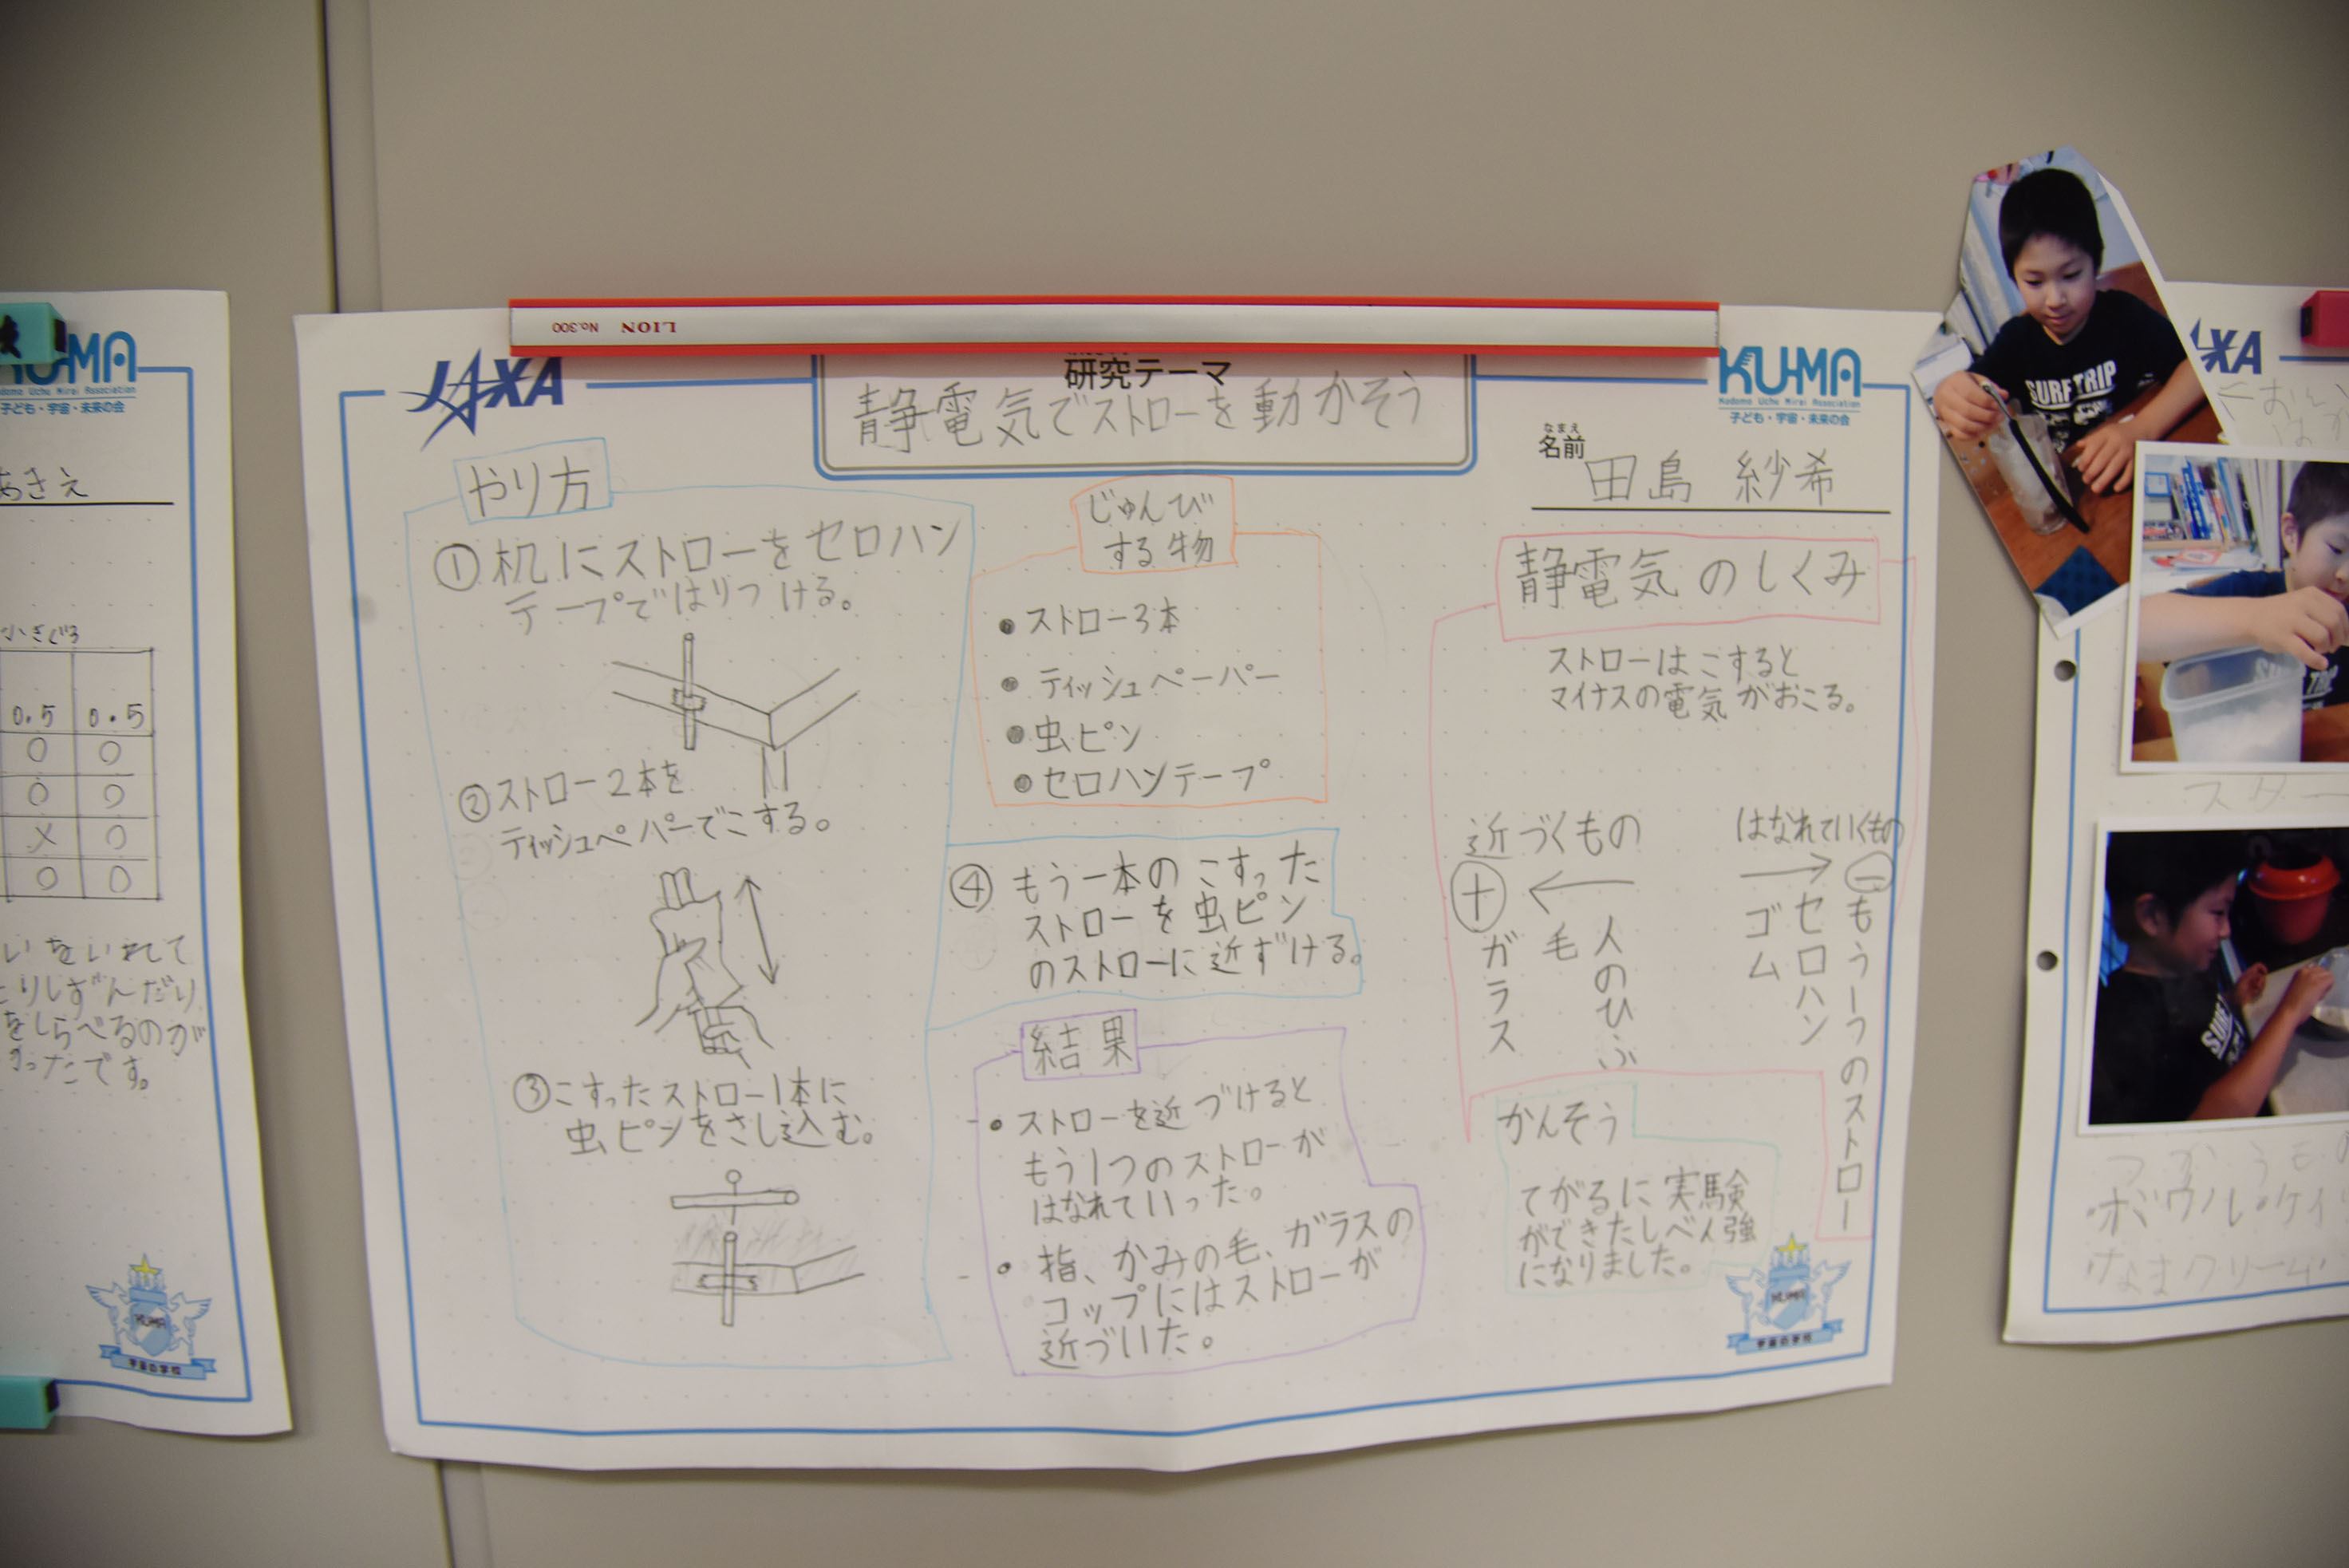 LION No.300
JAXA
研究テーマ
静電気でストローを動かそう
KU-MA
Kodomo Uchu Mirai Association
子ども・宇宙・未来の会
なまえ
名前
田島 紗希
やり方
①机にストローをセロハン
テープではりつける。
②ストロー2本を
ティッシュペパーでこする。
③こすったストロー1本に
虫ピンをさし込む。
じゅんび
する物
●ストロー3本
●ティッシュペーパー
●虫ピン
●セロハンテープ
④もう一本のこすった
ストローを虫ピン
のストローに近ずける。
結果
•ストローを近づけると
もう1つのストローが
はなれていった。
•指、かみの毛、ガラスの
コップにはストローが
近づいた。
静電気のしくみ
ストローはこすると
マイナスの電気がおこる。
近づくもの
+
←
人のひふ
毛
ガラス
はなれていくもの
→
−
もう一つのストロー
セロハン
ゴム
かんそう
てがるに実験
ができたしべん強
になりました。
KU-MA
宇宙の学校
KU-MA
Kodomo Uchu Mirai Association
子ども・宇宙・未来の会
あさえ
0.5 0.5
○ ○
○ ○
× ○
○ ○
いをいれて
とりしずんだり
をしらべるのが
かったです。
KU-MA
宇宙の学校
SURF TRIP
XA
つかうもの
•ボウル•ケイ
なまクリーム